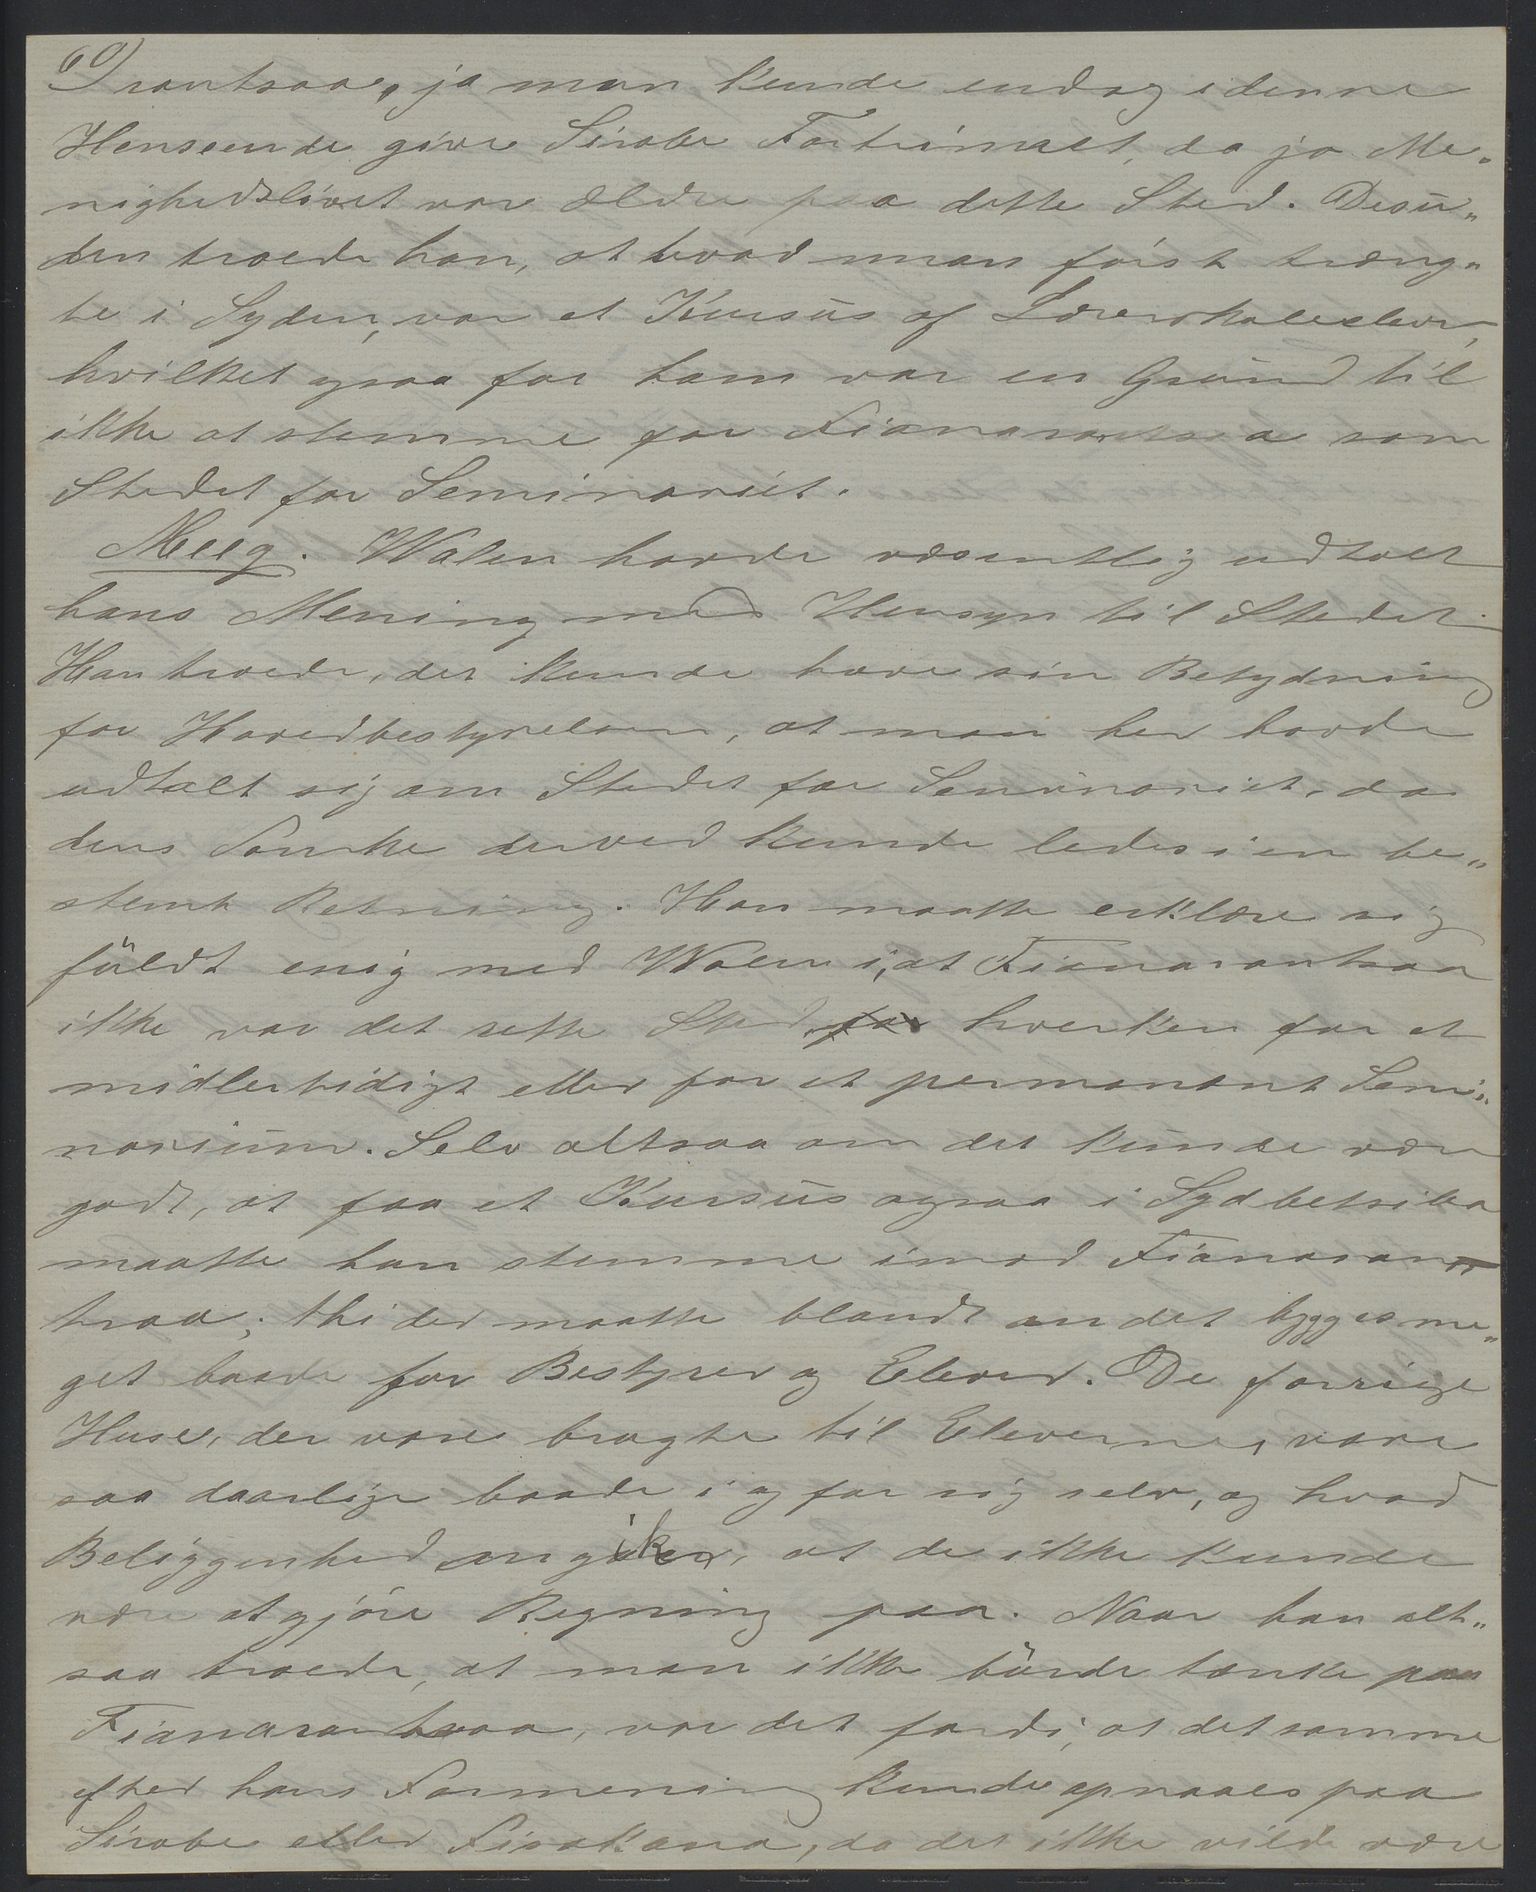 60)
rantsoa, ja man kunde endog i denne
Henseende give Sirabe Fortrinnet, da jo Me„
nighedslivet var ældre paa dette Sted. Desu„
den troede han, at hvad man først træng„
te i Syden, var et Kursus af Lærerskoleelever,
hvilket ogsaa for ham var en Grund til
ikke at stemme for Fianarantsoa som
Stedet for Seminariet.
Meeg. Walen havde væsentlig udtalt
hans Mening med Hensyn til Stedet.
Han troede, det kunde have sin Betydning
for Hovedbestyrelsen, at man her havde
udtalt sig om Stedet for Seminariet, da
dens Tanke derved kunde ledes i en be„
stemt Retning. Han maatte erklære sig
fuldt enig med Walen i, at Fianarantsoa
ikke var det rette Sted for hverken for et
midlertidigt eller for et permanent Semi„
narium. Selv altsaa om det kunde være
godt, at faa et Kursus ogsaa i Sydbetsileo
maatte han stemme imod Fianaran„
tsoa; thi der maatte blandt andet bygges me„
get baade for Bestyrer og Elever. De forrige
Huse, der vare brugte til Eleverne, vare
saa daarlige baade i og for sig selv, og hvad
Beliggenhed angik, at de ikke kunde
være at gjøre Regning paa. Naar han alt„
saa troede, at man ikke burde tænke paa
Fianarantsoa, var det fordi, at det samme
efter hans Formening kunde opnaaes paa
Sirabe eller Fisakana, da det ikke vilde være